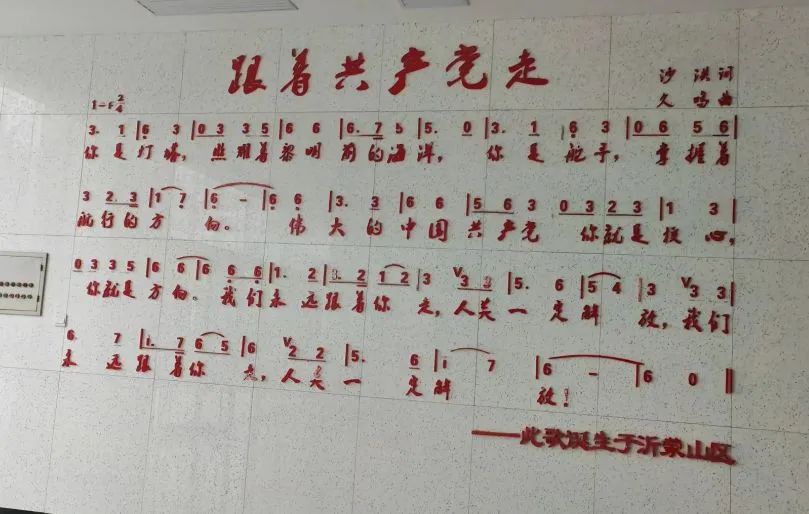 跟着共产党走
沙洪词
1=F 2/4
久鸣曲
3. 1 |6 3 |0 3 3 5 |6 6 |6. 7 5 |5. 0 |3. 1 6 3 |0 6 5 6|
你是灯塔，照耀着黎明前的海洋，你是舵手，掌握着
3 2.3 |1 7 |6 - |6 6 |3. 3 |6 6 |5 6 3 0 3 2 3 |1 3|
航行的方向。伟大的中国共产党 你就是核心，
0 3 3 5 |6 6 |6 6 6 |1. 2 |3. 2 1 2 |3 V3 3 |5. 6 |5 4 |3 V3 3|
你就是方向。我们永远跟着你走，人类一定解放，我们
6. 7 |i. 7 6 5 |6 V2 2 |5. 6 |i 7 |6 - |6 0 ‖
永远跟着你走，人类一定解放！
——此歌诞生于沂蒙山区